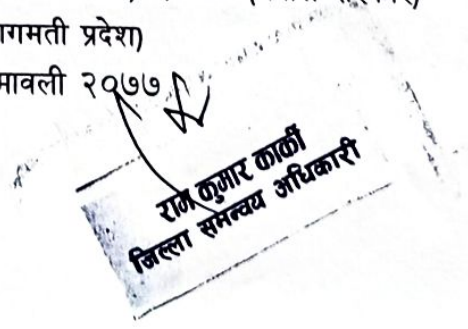 ागमती प्रदेश)
मावली २०७७
राम कुमार कार्की
जिल्ला समन्वय अधिकारी